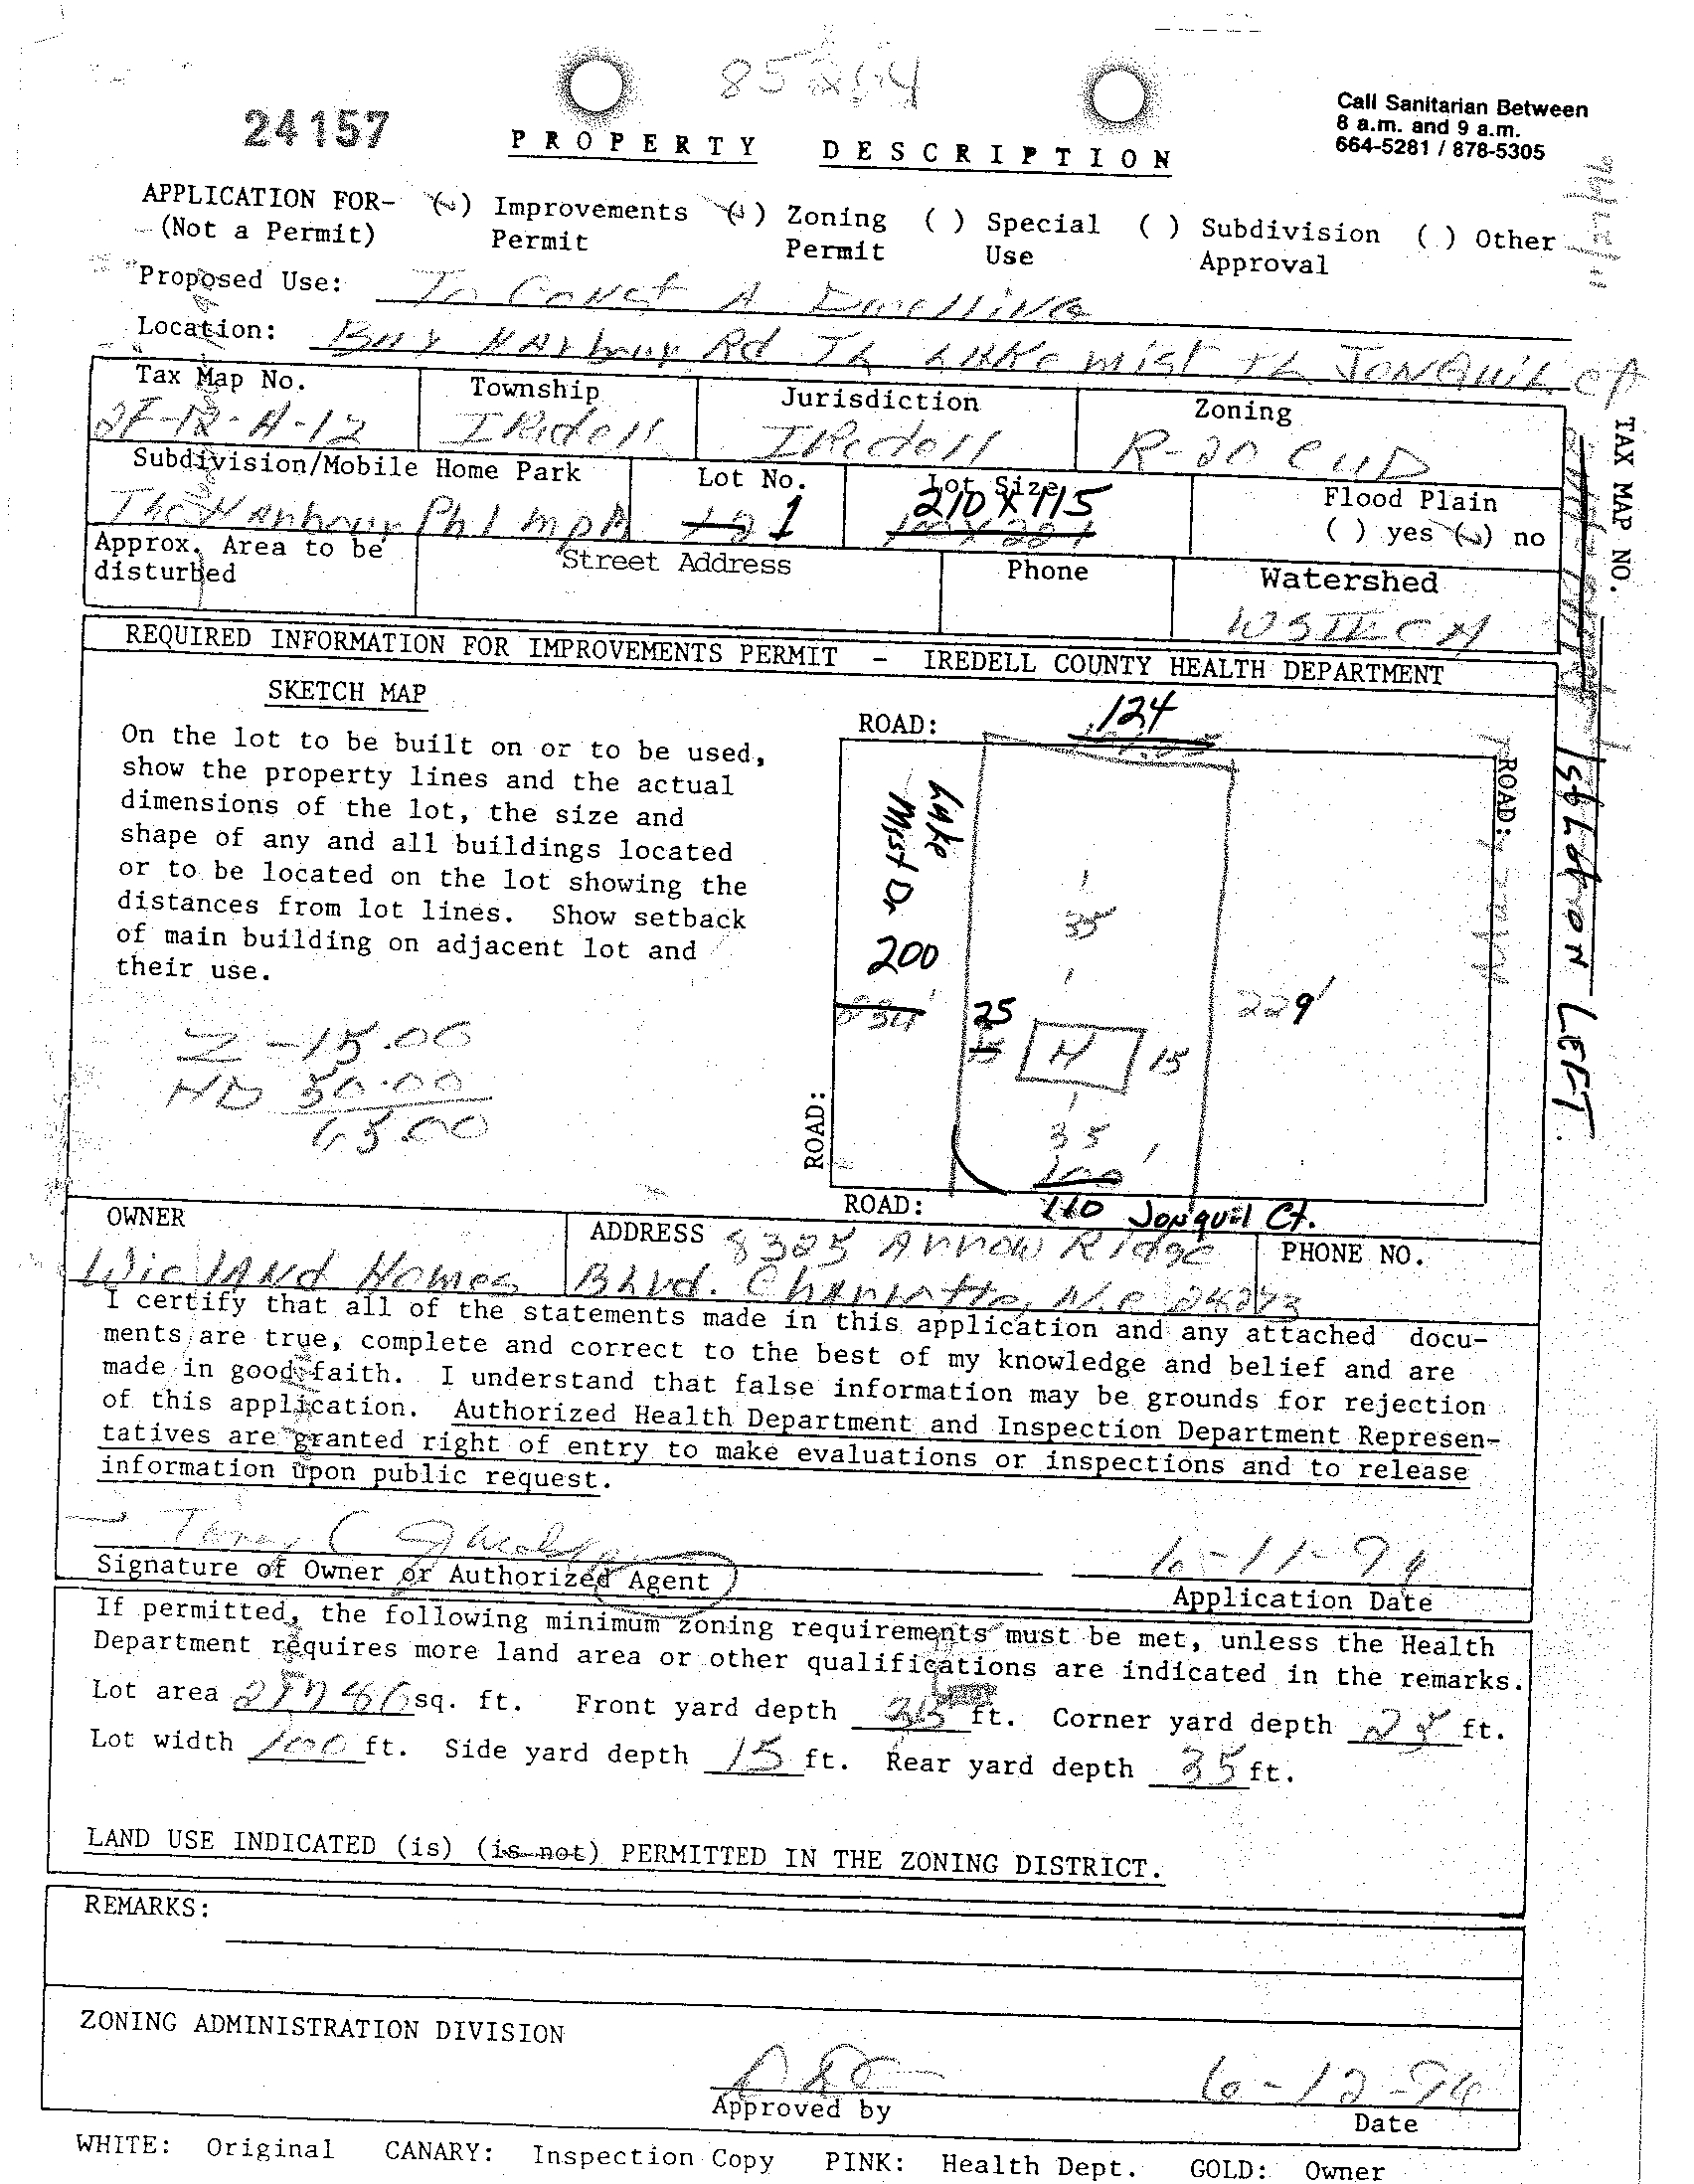 24157
PROPERTY DESCRIPTION
Call Sanitarian Between
8 a.m. and 9 a.m.
664-5281 / 878-5305
APPLICATION FOR- ( ) Improvements ( ) Zoning ( ) Special ( ) Subdivision ( ) Other
(Not a Permit) Permit Permit Use Approval
Proposed Use: To Const A Dwelling
Location: Bay Harbour Rd TL Lake mist TL JonQuil Ct
Tax Map No. Township Jurisdiction Zoning
2F-12-A-12 IRedell IRedell R-20 CUD
Subdivision/Mobile Home Park Lot No. Lot Size Flood Plain
The Harbour Ph 1 mpA 1 210 X 115 ( ) yes ( ) no
Approx. Area to be Street Address Phone Watershed
disturbed
TAX MAP NO.
REQUIRED INFORMATION FOR IMPROVEMENTS PERMIT - IREDELL COUNTY HEALTH DEPARTMENT
SKETCH MAP
On the lot to be built on or to be used,
show the property lines and the actual
dimensions of the lot, the size and
shape of any and all buildings located
or to be located on the lot showing the
distances from lot lines. Show setback
of main building on adjacent lot and
their use.
Z - 15.00
HD 50.00
65.00
ROAD: 124
ROAD:
Lake
Mist Dr
35
200
229'
25
H 15
35
100
ROAD:
ROAD: 110 Jonquil Ct.
1st Lot on LEFT
OWNER ADDRESS 8325 Arrow Ridge PHONE NO.
Wieland Homes Blvd. Charlotte, N.C 28273
I certify that all of the statements made in this application and any attached docu-
ments are true, complete and correct to the best of my knowledge and belief and are
made in good faith. I understand that false information may be grounds for rejection
of this application. Authorized Health Department and Inspection Department Represen-
tatives are granted right of entry to make evaluations or inspections and to release
information upon public request.
Signature of Owner or Authorized Agent
Application Date
If permitted, the following minimum zoning requirements must be met, unless the Health
Department requires more land area or other qualifications are indicated in the remarks.
Lot area sq. ft. Front yard depth 35 ft. Corner yard depth 25 ft.
Lot width 100 ft. Side yard depth 15 ft. Rear yard depth 35 ft.
LAND USE INDICATED (is) (is not) PERMITTED IN THE ZONING DISTRICT.
REMARKS:
ZONING ADMINISTRATION DIVISION
6-12-96
Approved by
Date
WHITE: Original CANARY: Inspection Copy PINK: Health Dept. GOLD: Owner